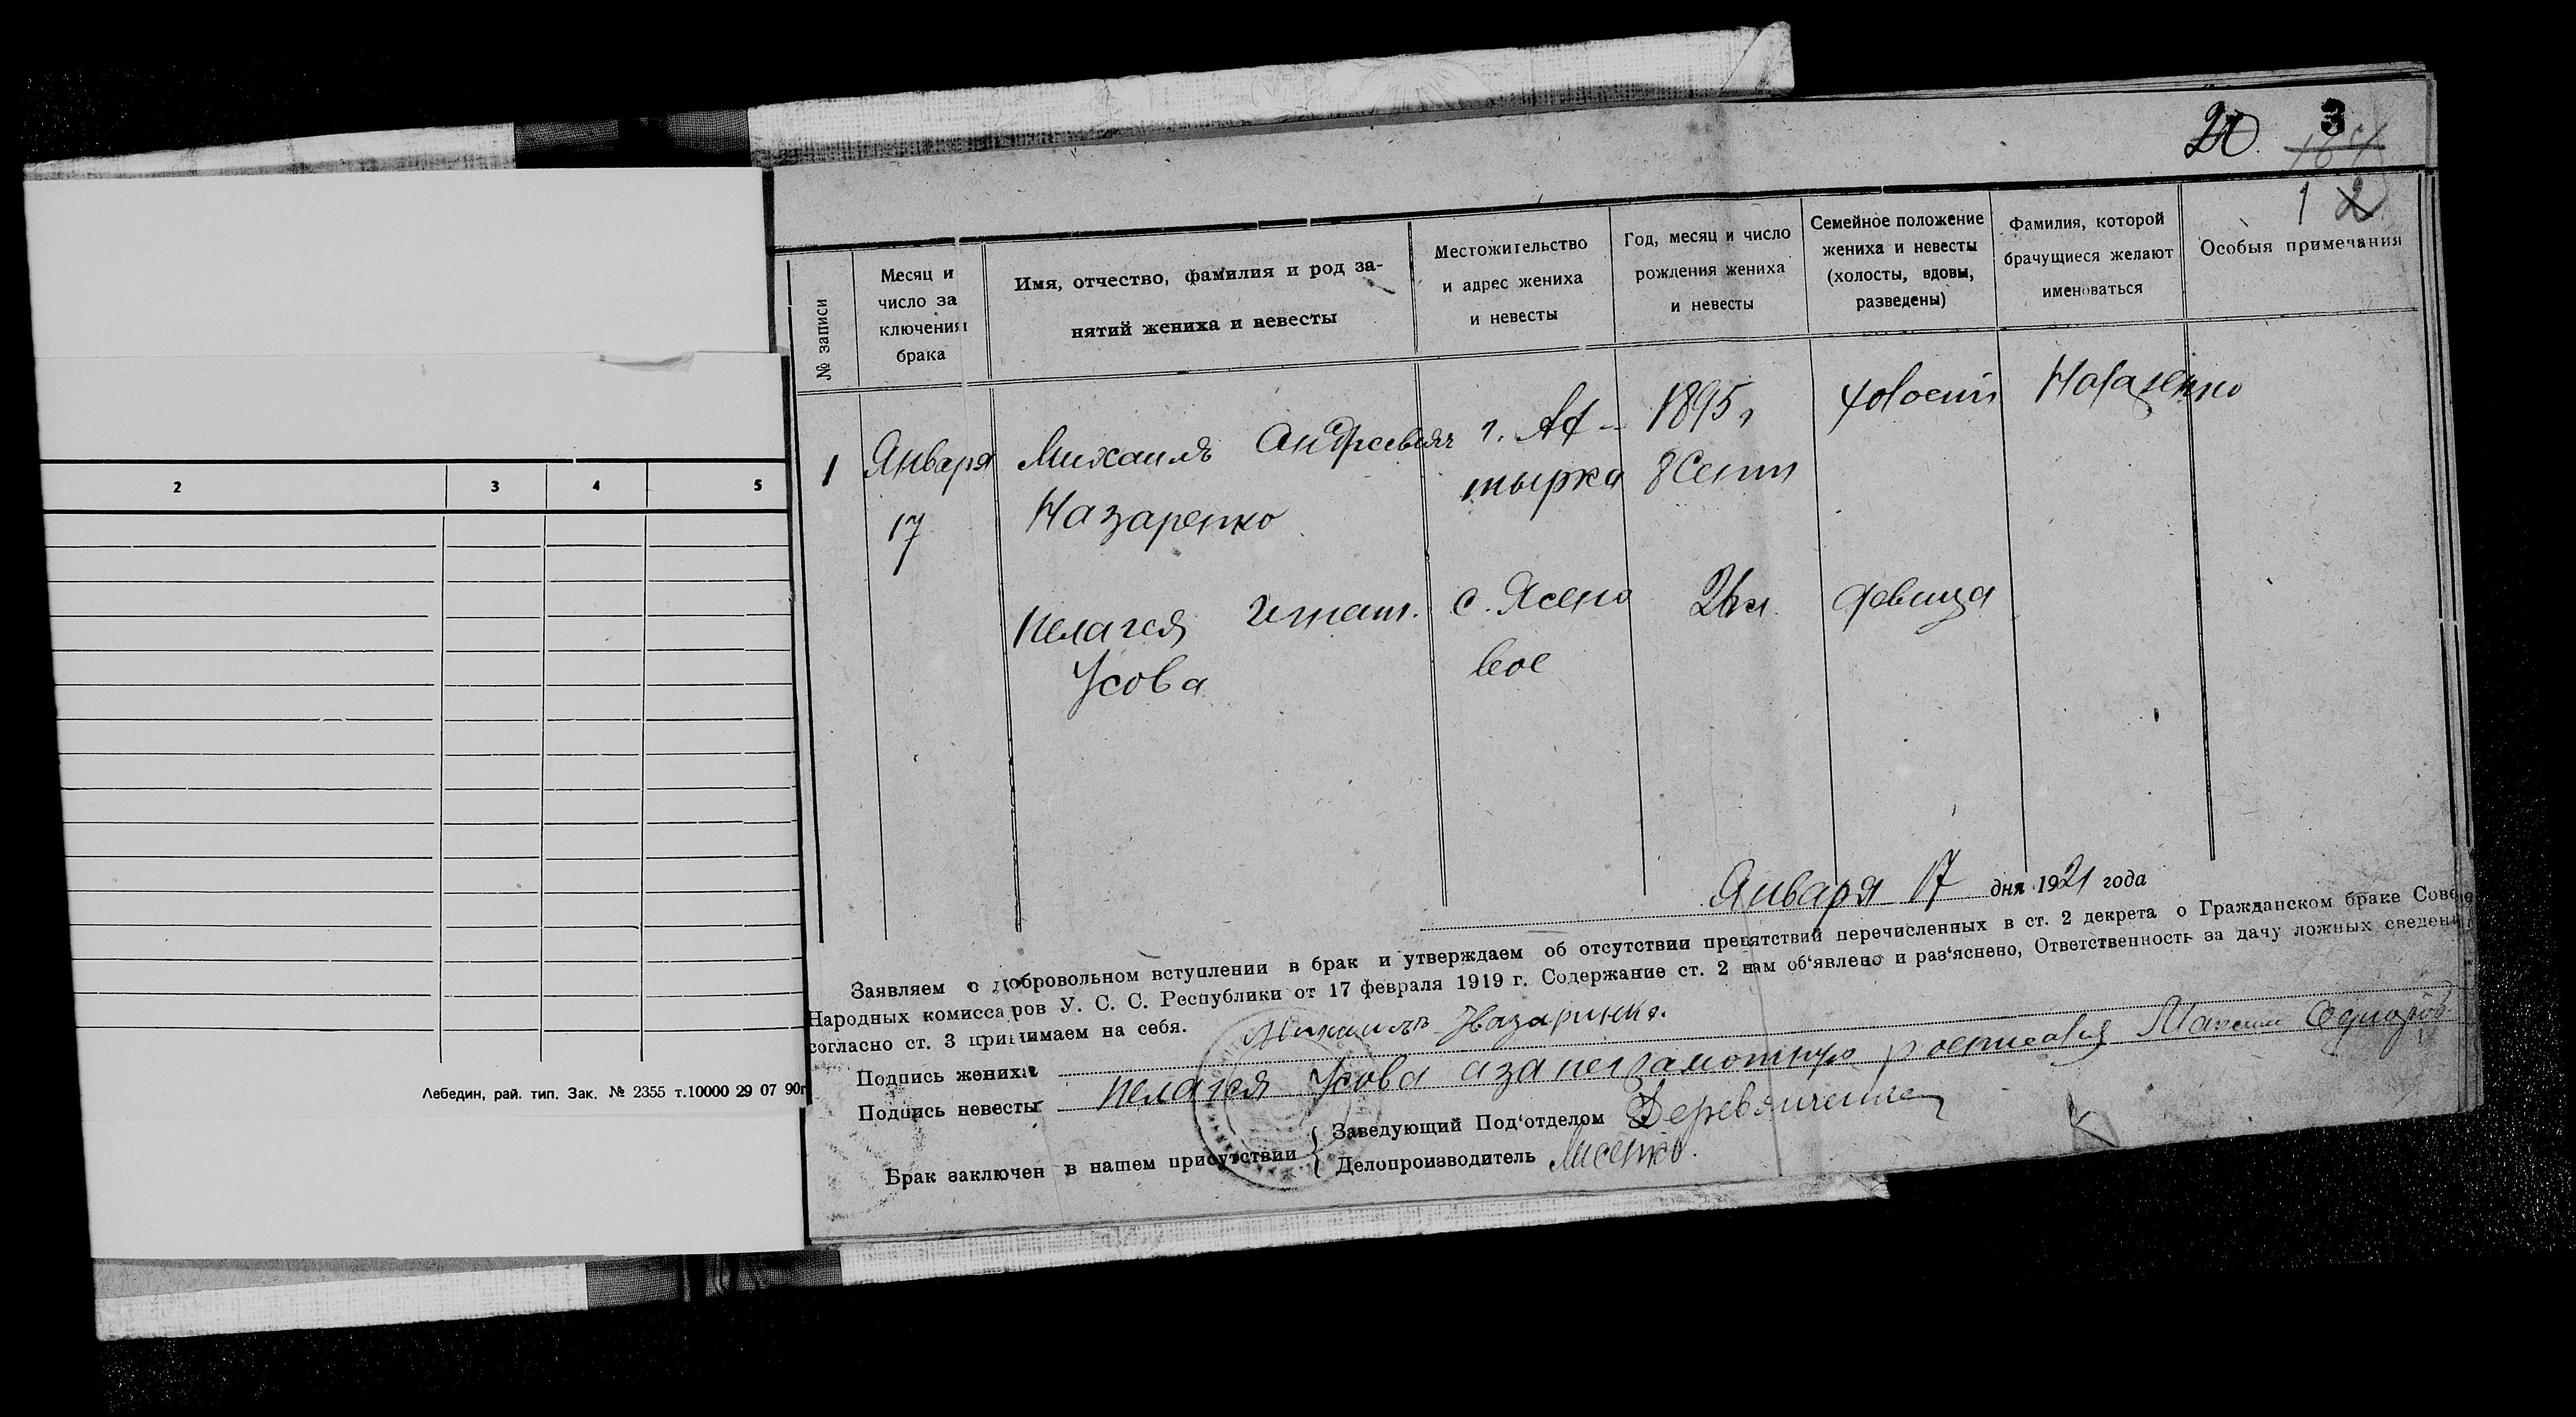 20 3
164
1 2
№ записи
Месяц и число за ключения брака
Имя, отчество, фамилия и род за-
нятий жениха и невесты
Местожительство и адрес жениха и невесты
Год, месяц и число рождения жениха и невесты
Семейное положение жениха и невесты (холосты, вдовы, разведены)
Фамилия, которой брачущиеся желают именоваться
Особыя примечания
2 3 4 5
1 Января Михаилъ Андреевич г. Ах- 1895 г холост Назаренко
17 Назаренко тырка 8 Сент
Пелагея Игнат. с. Ясено девица
Усова вое
Января 17 дня 1921 года
Заявляем о добровольном вступлении в брак и утверждаем об отсутствии препятствий перечисленных в ст. 2 декрета о Гражданском браке Сове
Народных комиссаров У. С. С. Республики от 17 февраля 1919 г. Содержание ст. 2 нам об‘явлено и раз‘яснено, Ответственность за дачу ложных сведени
согласно ст. 3 принимаем на себя.
Подпись жениха Михаилъ Назаринко.
Подпись невесты Пелагея Усова а за неграмотную росписался Максим
Брак заключен в нашем присутствии
Заведующий Под‘отделом Деревянченко
Делопроизводитель Лисенко.
Лебедин, рай. тип. Зак. № 2355 т.10000 29 07 90г